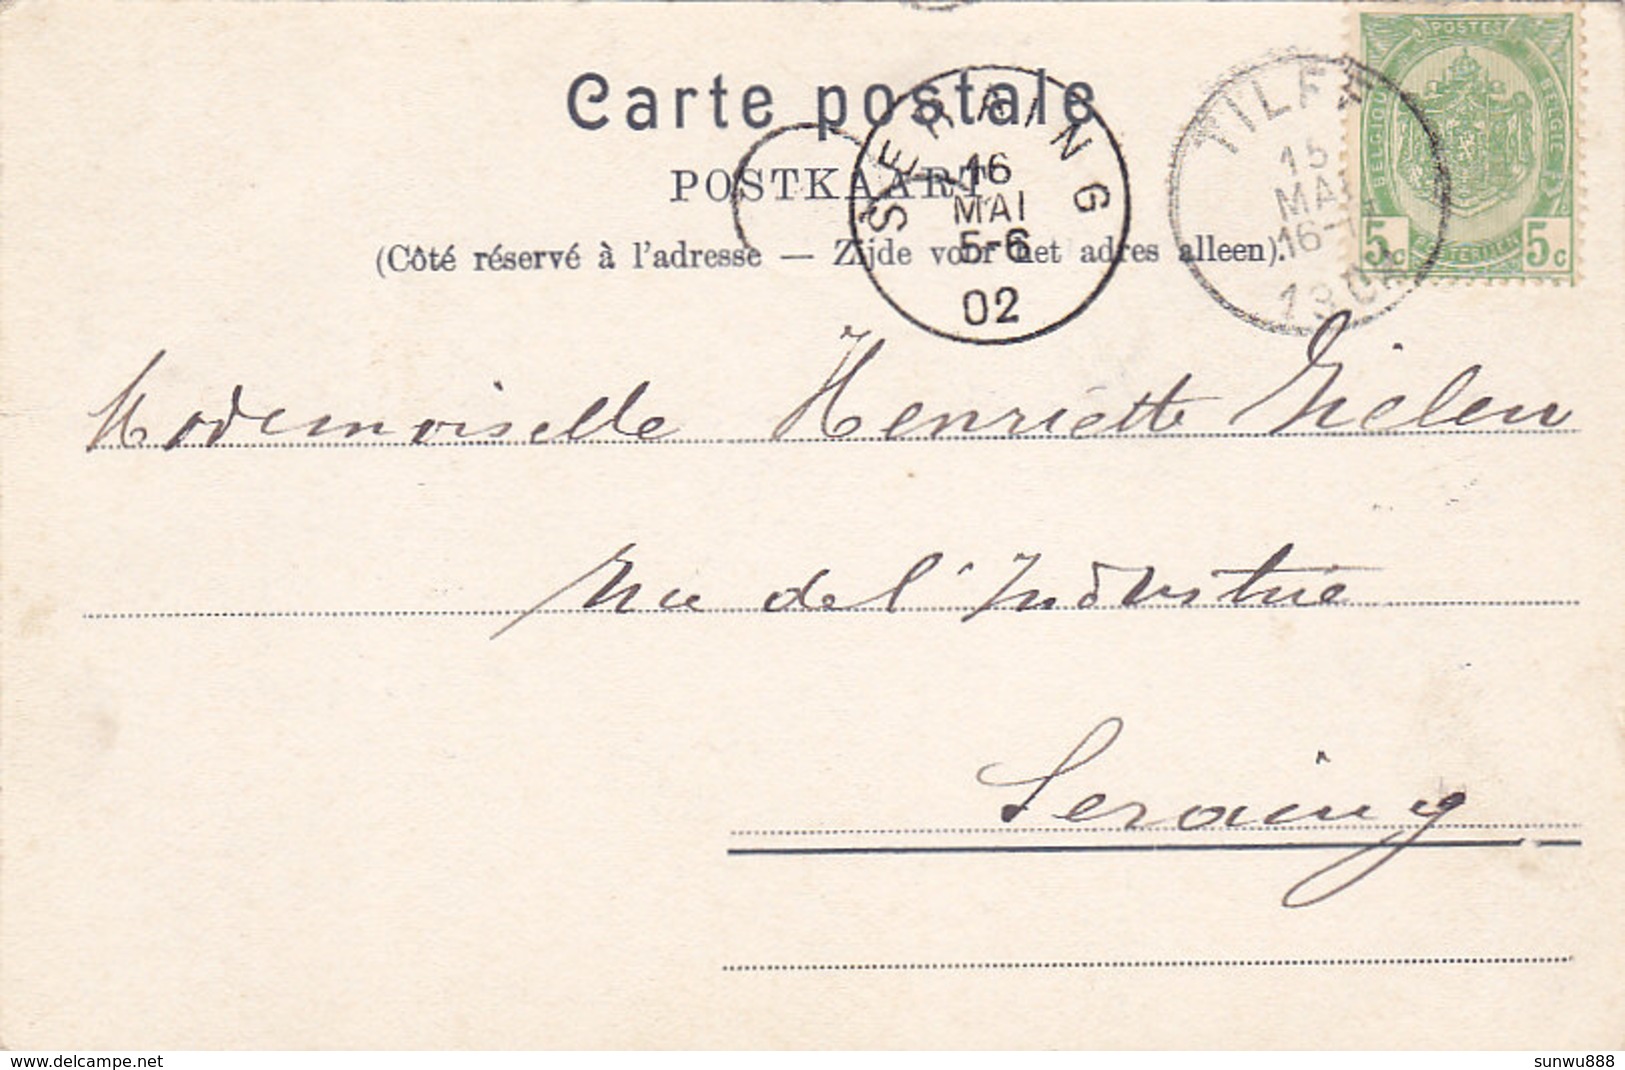 Carte postale
POSTKAART
(Côté réservé à l'adresse — Zijde voor het adres alleen).
SERAING
16
MAI
5-6
02
TILFF
15
MAI
16-
1902
POSTES
BELGIQUE
BELGIE
5c
5c
Mademoiselle Henriette Gielen
Rue de l'Industrie
Seraing
www.delcampe.net
sunwu888